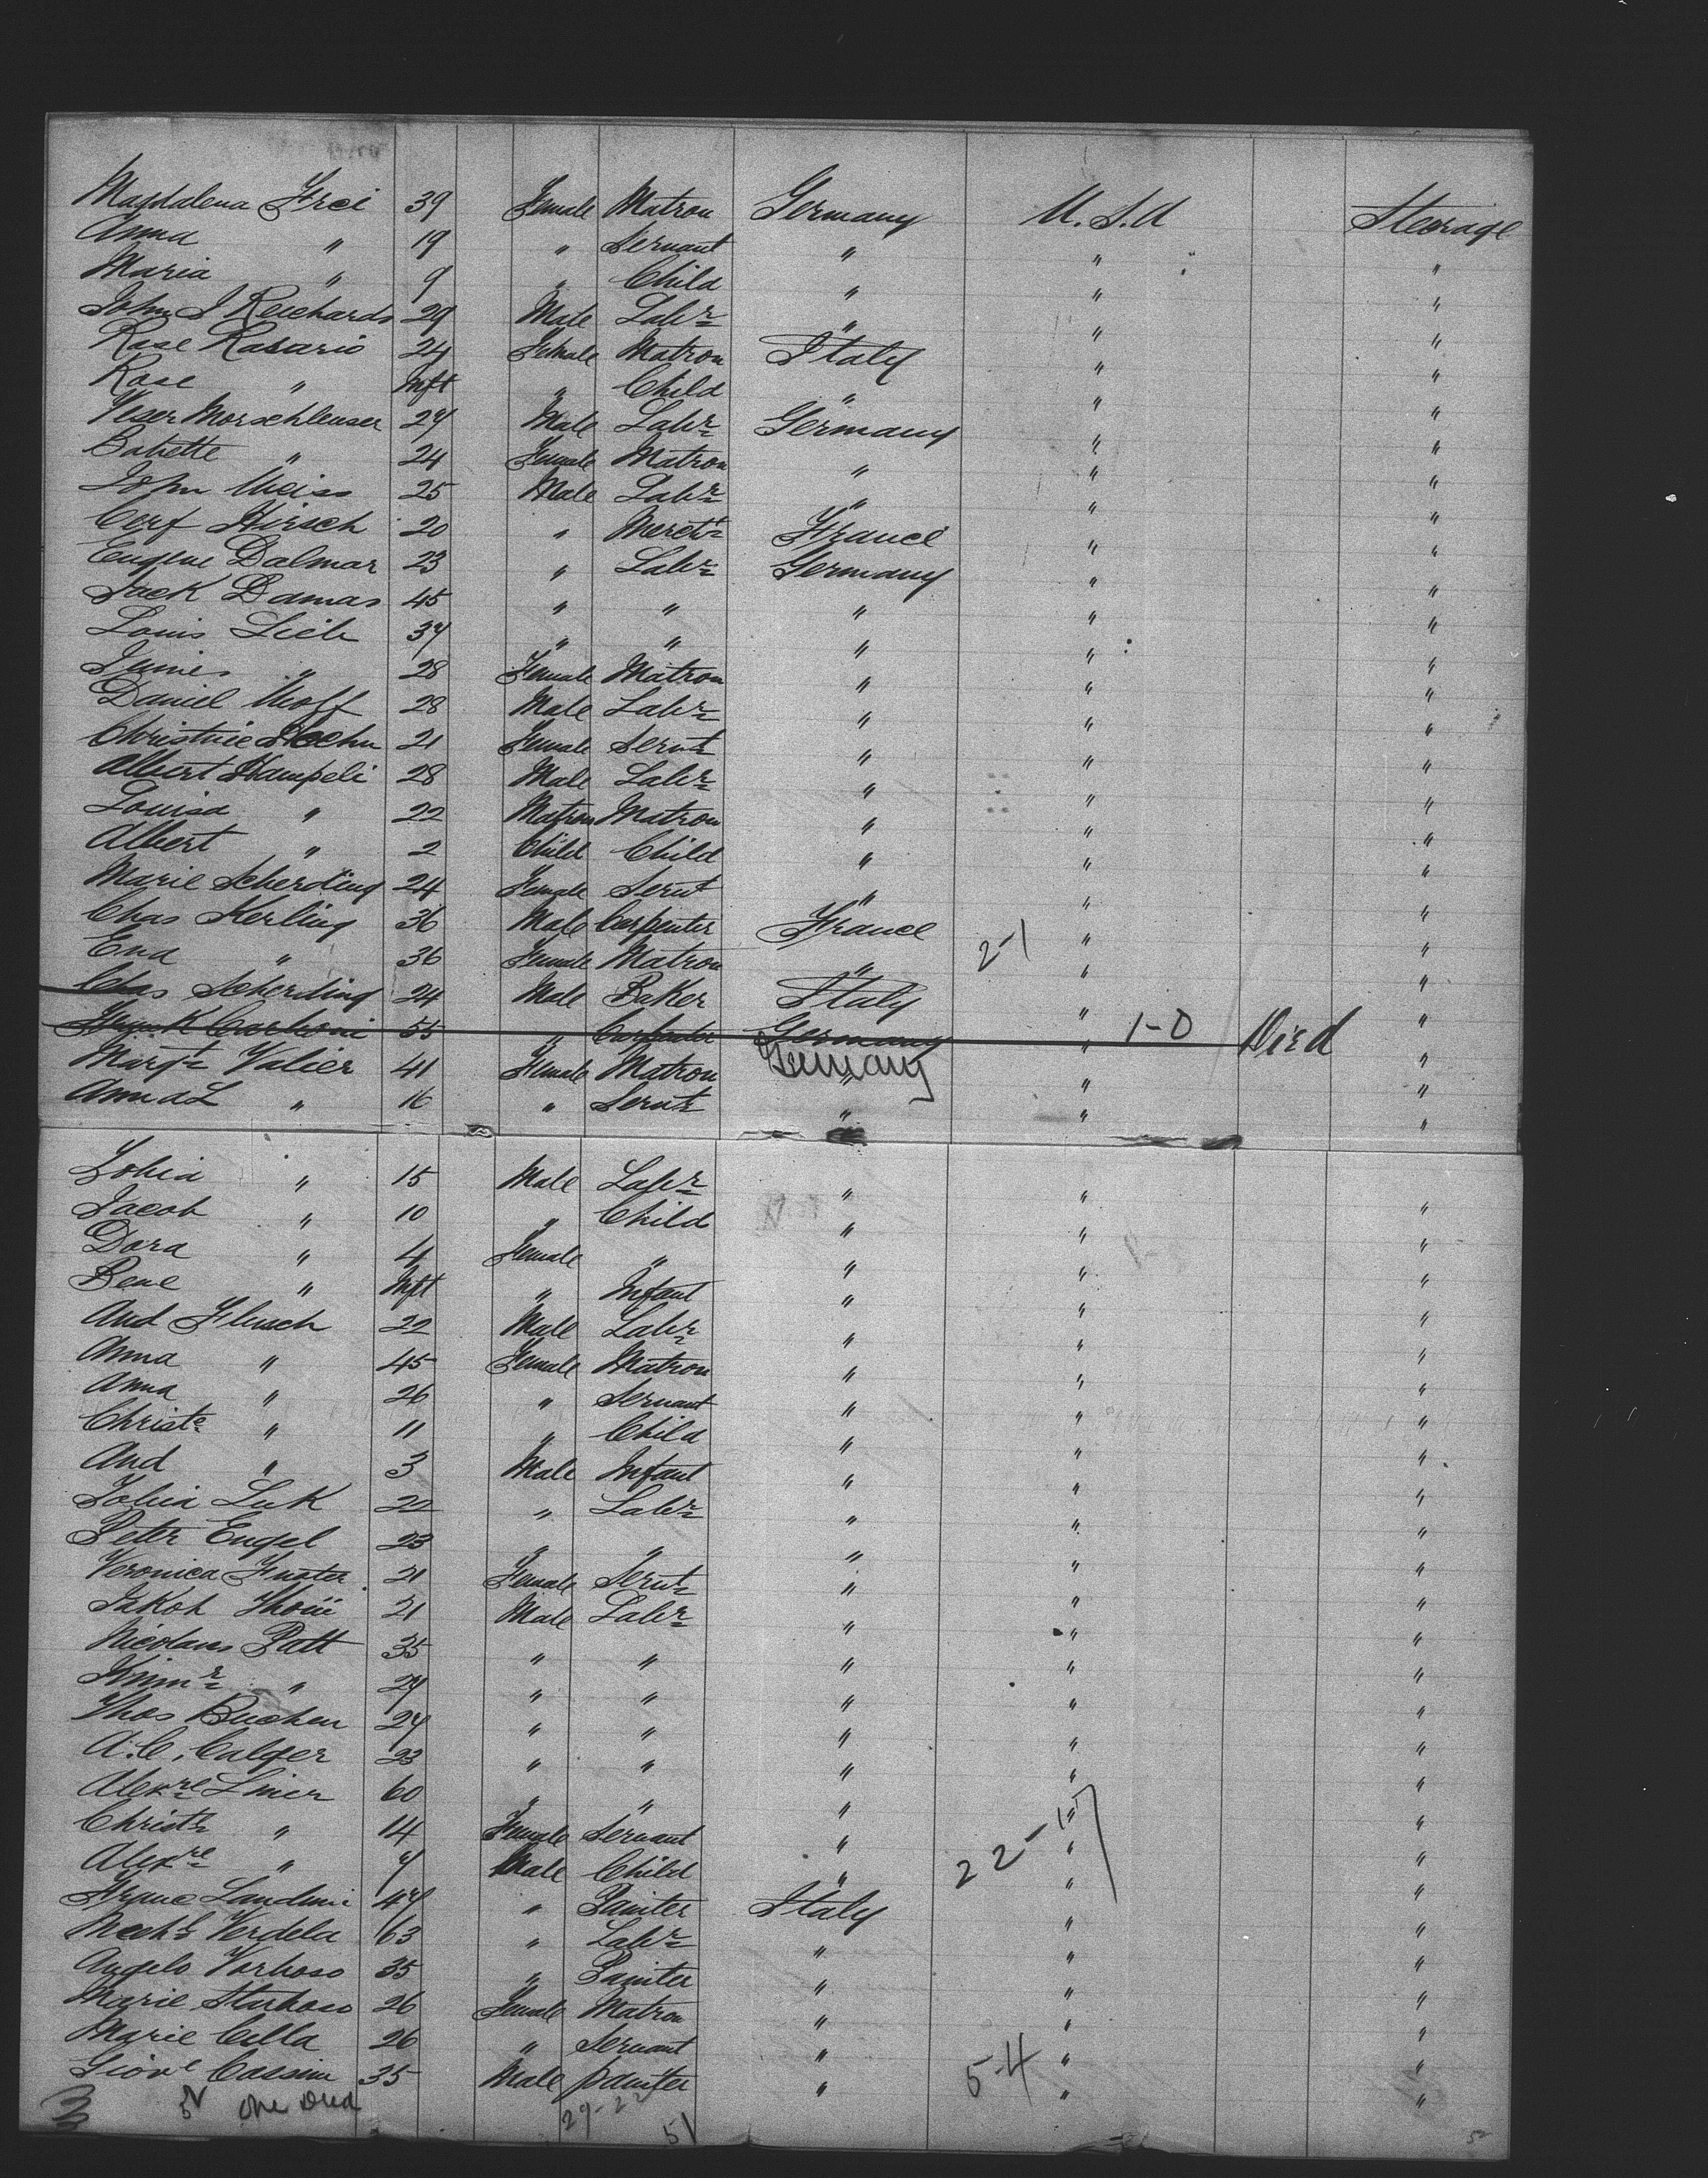 Magdalena Frei 39 Female Matron Germany U.S.A Steerage
Anna " 19 " Servant " " "
Maria " 9 " Child " " "
John J Reichards 29 Male Labr " " "
Rose Rasario 24 Female Matron Italy " "
Rose " Inft " Child " " "
Morschleuser 24 Male Labr Germany " "
Babette " 24 Female Matron " " "
John Weiss 25 Male Labr " " "
Cerf Hirsch 20 " Merct France " "
Eugene Dalmar 23 " Labr Germany " "
Jack Damas 45 " " " " "
Louis Lieb 34 " " " " "
" 28 Female Matron " " "
Daniel Wolf 28 Male Labr " " "
Christine 21 Female Servt " " "
Albert Hampeli 28 Male Labr " " "
Louisa " 22 Matron Matron " " "
Albert " 2 Child Child " " "
Marie Scherding 24 Female Servt " " "
Chas Kerling 36 Male Carpenter France " "
" 36 Female Matron " 2-1 " "
Chas Scherding 24 Male Baker Italy " "
Frank Carboni 55 " Carpenter Germany " 1-0 Died "
Margt Valier 41 Female Matron Germany " " "
Anna L " 16 " Servt " " "
" 15 Male Labr " " "
Jacob " 10 " Child " " "
Dora " 4 Female " " " "
Bene " Inft " Infant " " "
And Flusch 22 Male Labr " " "
Anna " 45 Female Matron " " "
Anna " 26 " Servant " " "
Christe " 11 " Child " " "
And " 3 Male Infant " " "
Luk 22 " Labr " " "
Peter Engel 23 " " " " "
Veronica 21 Female Servt " " "
Jakob 21 Male Labr " " "
Nicolaus Patt 35 " " " " "
" 24 " " " " "
Thos Buchen 24 " " " " "
A.C. Calger 23 " " " " "
Alexre Linier 60 " " " " "
Christ " 14 Female Servant " 22-1 " "
Alexre " 7 Male Child " " "
Landini 47 " Painter Italy " "
Verdela 63 " Labr " " "
Angelo Varboso 35 " Painter " " "
Marie Starboso 26 Female Matron " " "
Marie Cella 26 " Servant " " "
Giove Cassini 35 Male painter " 5-4 " "
one died 29-22 51 52